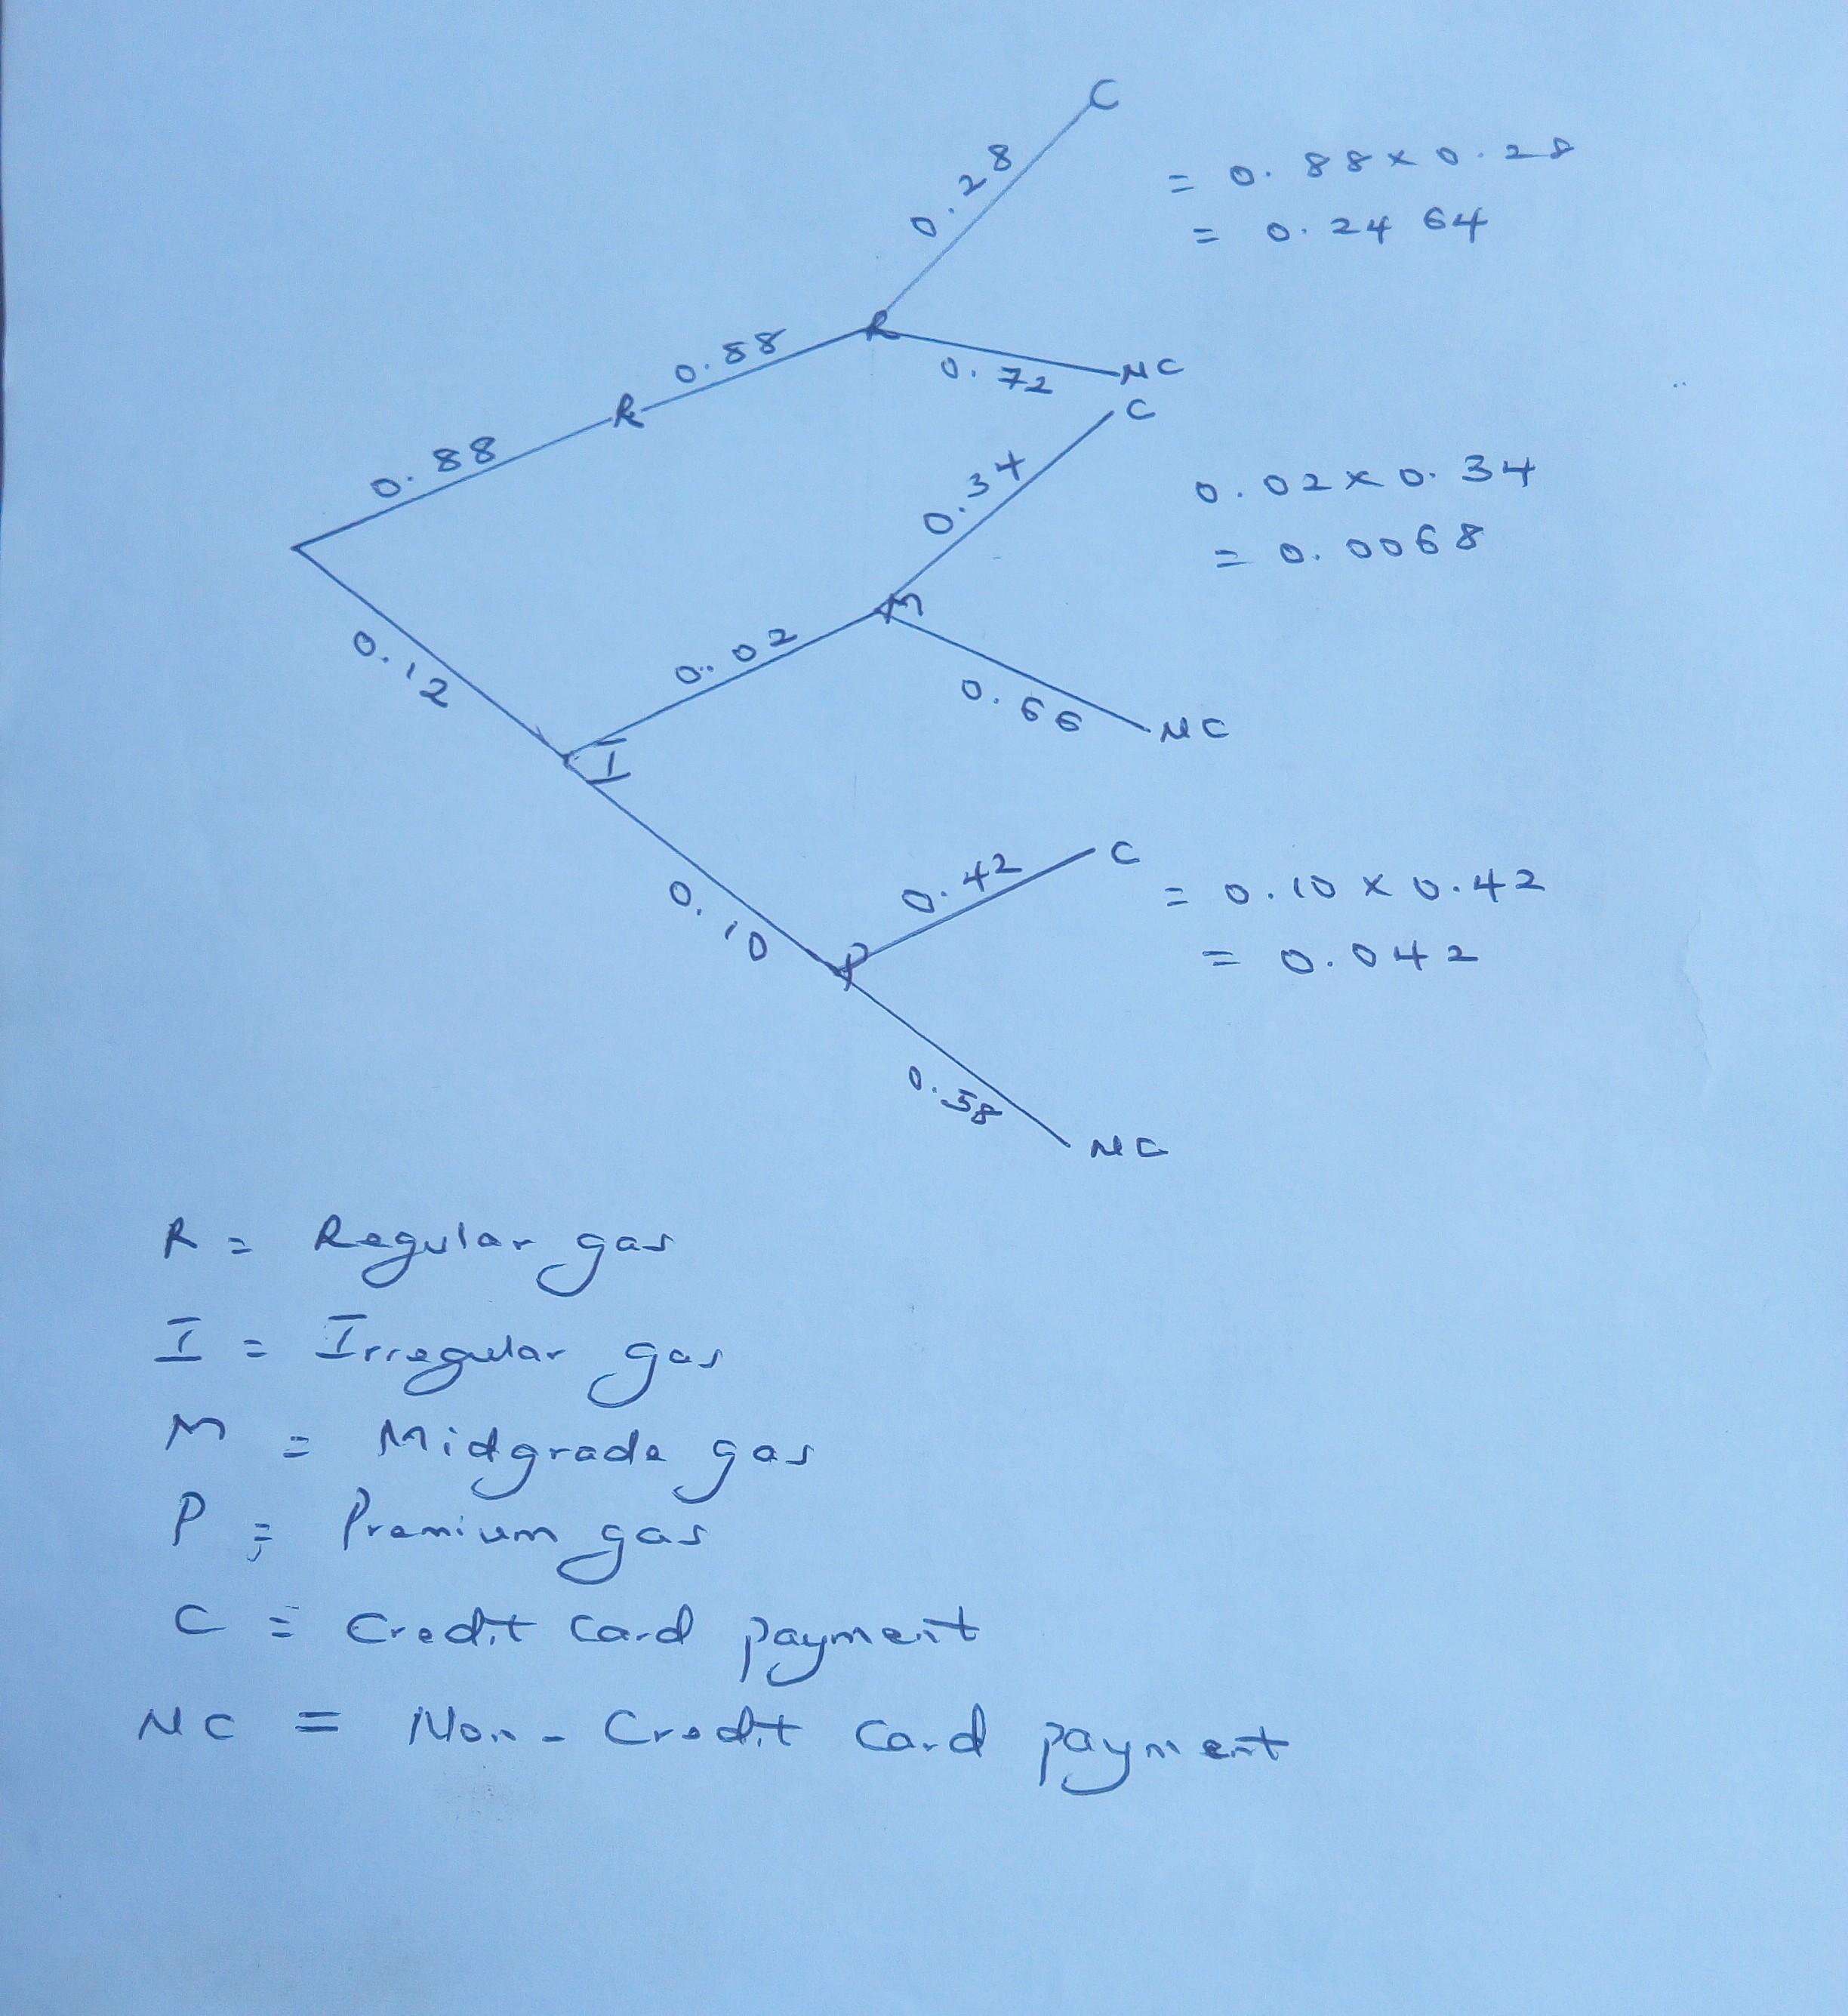 C
0.28
= 0.88 x 0.28
= 0.2464
R
0.88
0.72
NC
R
0.88
C
0.34
0.02 x 0.34
= 0.0068
M
0.02
0.12
0.66
NC
I
C
0.42
= 0.10 x 0.42
= 0.042
0.10
P
0.58
NC
R = Regular gas
I = Irregular gas
M = Midgrade gas
P = Premium gas
C = Credit Card payment
NC = Non-Credit Card payment